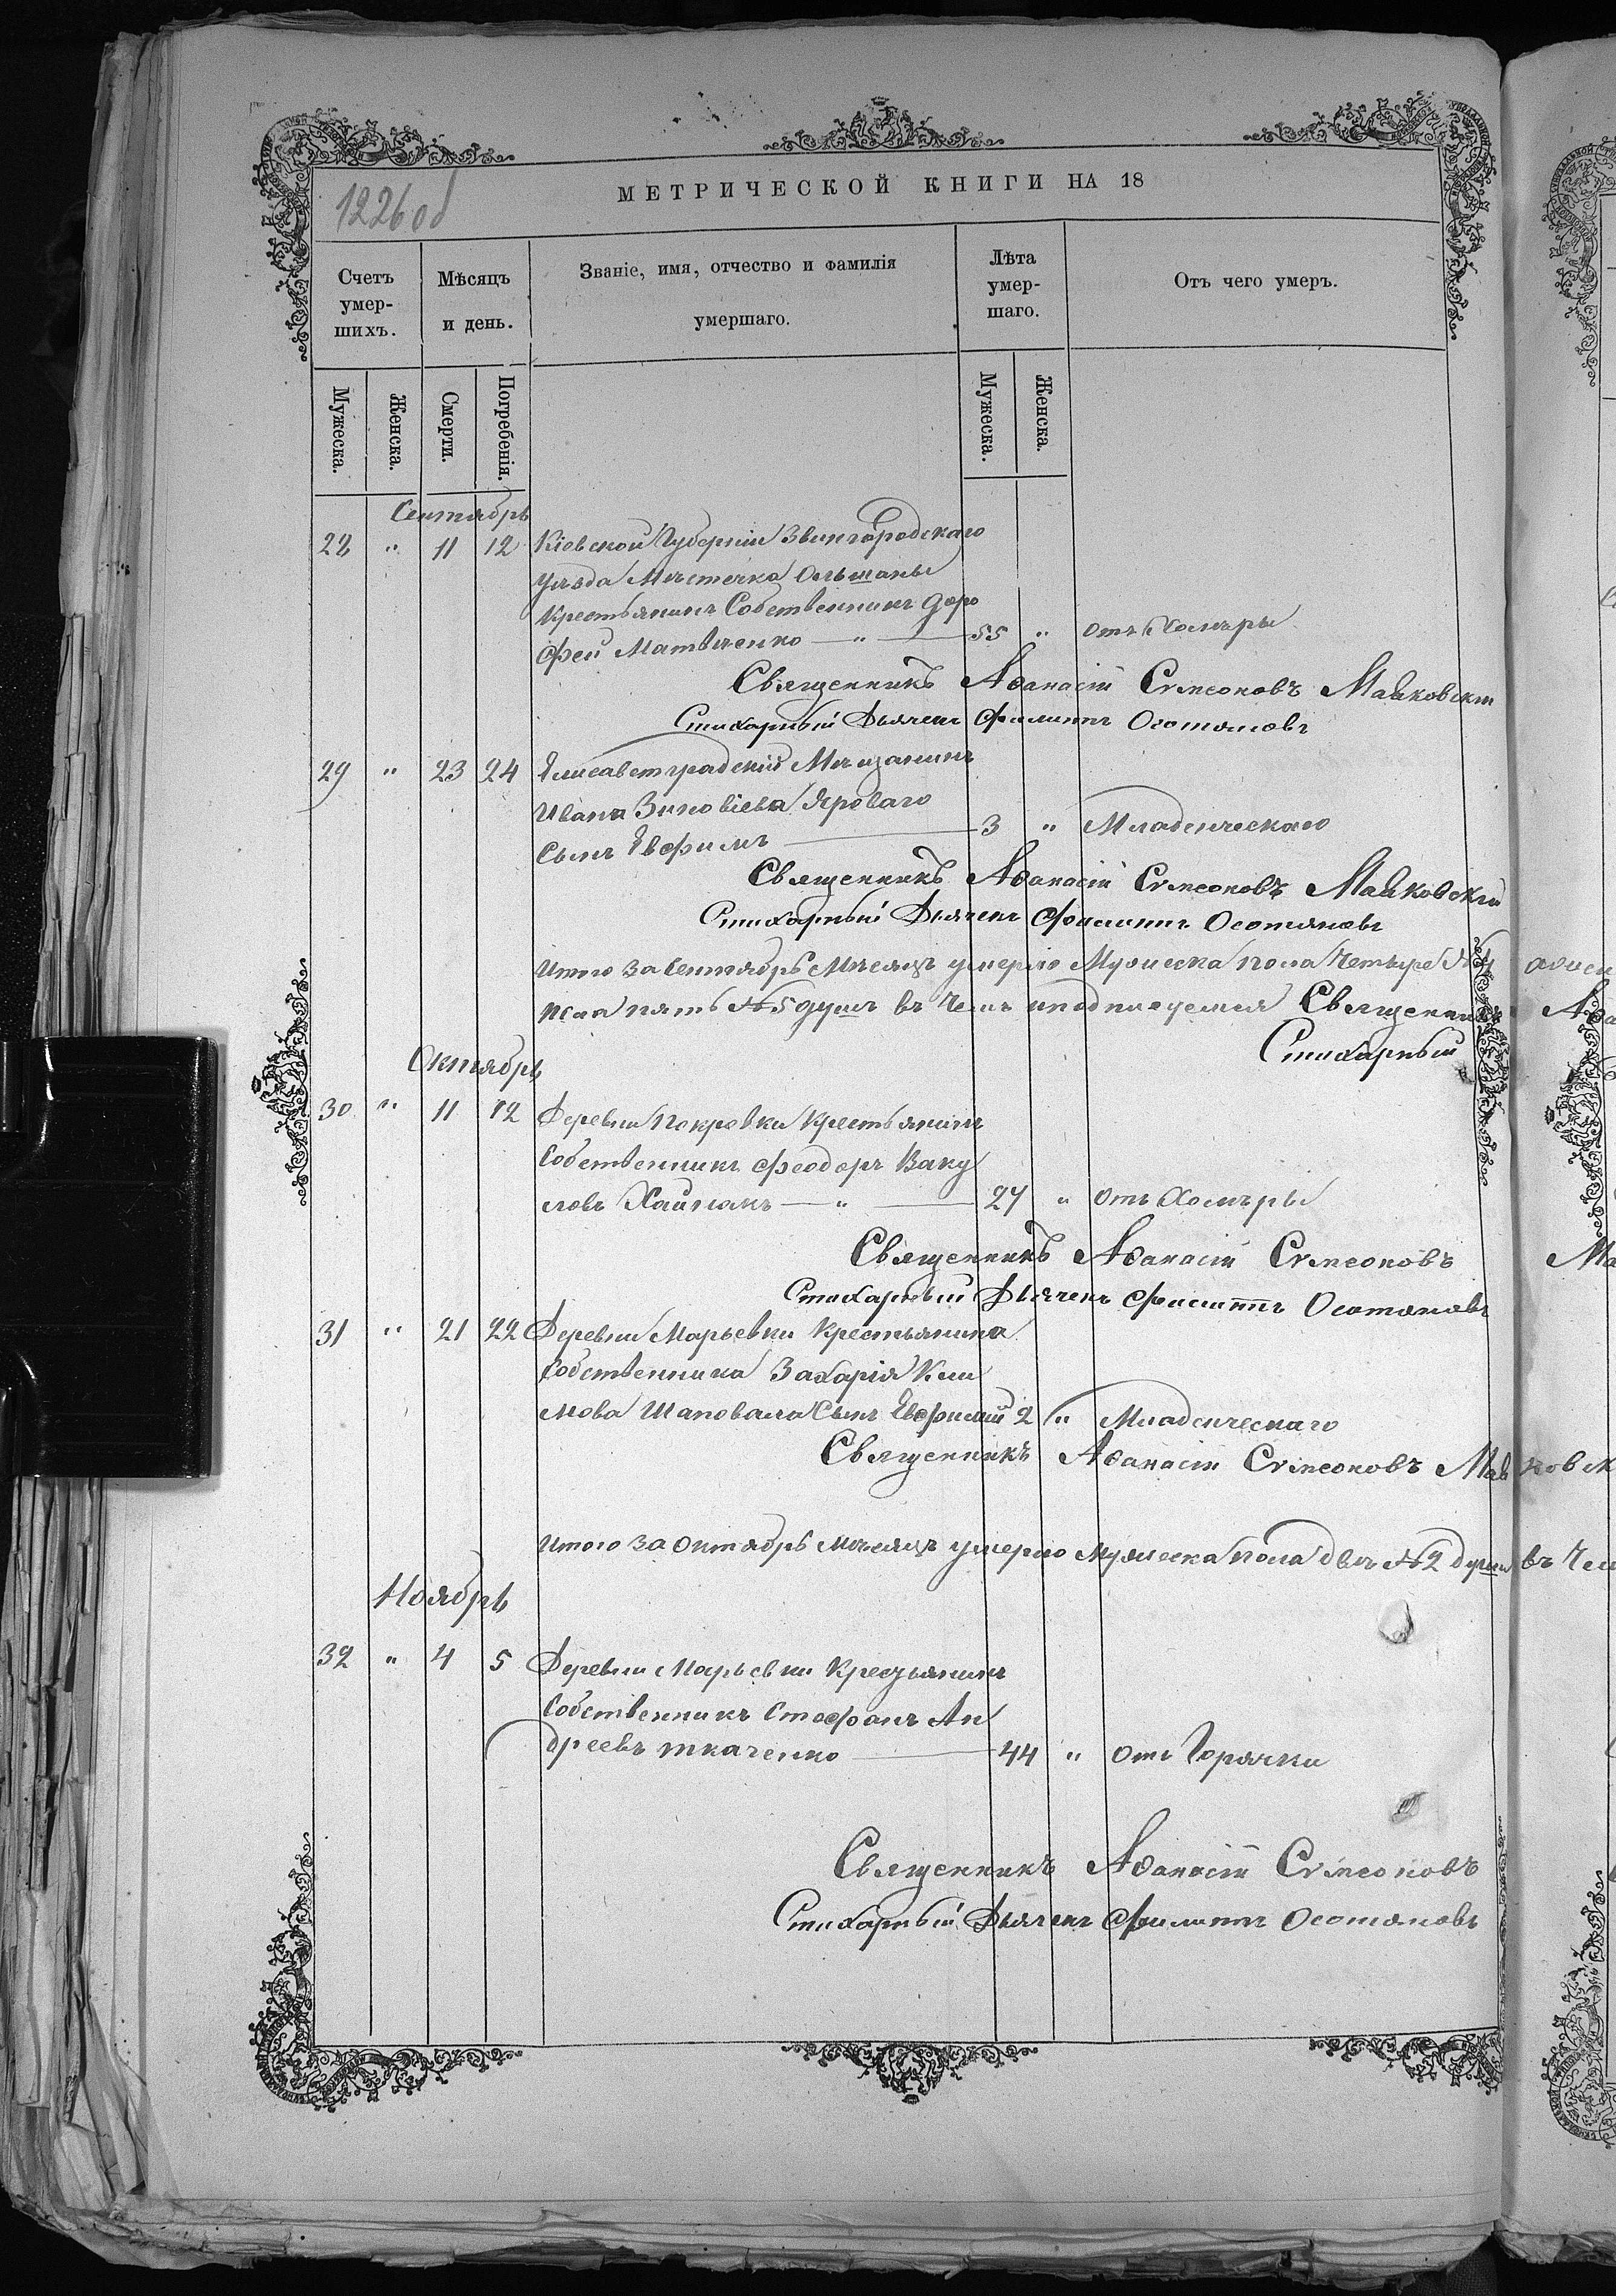 1226 об
МЕТРИЧЕСКОЙ КНИГИ НА 18
Счетъ умер-шихъ.
Мѣсяцъ и день.
Званіе, имя, отчество и фамилія умершаго.
Лѣта умер-шаго.
Отъ чего умеръ.
Мужеска.
Женска.
Смерти.
Погребенія.
Мужеска.
Женска.
Сентябрь
28 " 11 12 Кіевской Губерніи Звингородскаго
уѣзда Мѣстечка Ольшаны
Крестьянинъ Собственникъ Доро
фей Матвіенко — " — 55 " отъ Холѣры
Священникъ Аѳанасій Сѵмеоновъ Маяковскій
Стихарный Дьячекъ Филиппъ
29 " 23 24 Елисаветградскій Мѣщанинъ
Ивана Зиновіева Яроваго
Сынъ Евфимъ — 3 " Младенческаго
Священникъ Аѳанасій Сѵмеоновъ Маяковскій
Стихарный Дьячекъ Филиппъ
Итого за Сентябрь Мѣсяцъ умерло Мужеска пола Четыре №4
пола пять №5 душъ въ Чемъ и подписуемся Священникъ
Стихарный
Октябрь
30 " 11 12 Деревни Покровки Крестьянинъ
Собственникъ Феодоръ Ваку
ловъ — " — 27 " отъ Холѣры
Священникъ Аѳанасій Сѵмеоновъ
Стихарный Дьячекъ Филиппъ
31 " 21 22 Деревни Марьевки Крестьянина
Собственника Захарія Кли
мова Шаповала Сынъ Евфимій 2 " Младенческаго
Священникъ Аѳанасій Сѵмеоновъ
Итого за Октябрь мѣсяцъ умерло мужеска пола двѣ №2 души въ Чем
Ноябрь
32 " 4 5 Деревни Марьевки Крестьянинъ
Собственникъ Стефанъ Ан
дреевъ Ткаченко — 44 " отъ Горячки
Священникъ Аѳанасій Сѵмеоновъ
Стихарный Дьячекъ Филиппъ